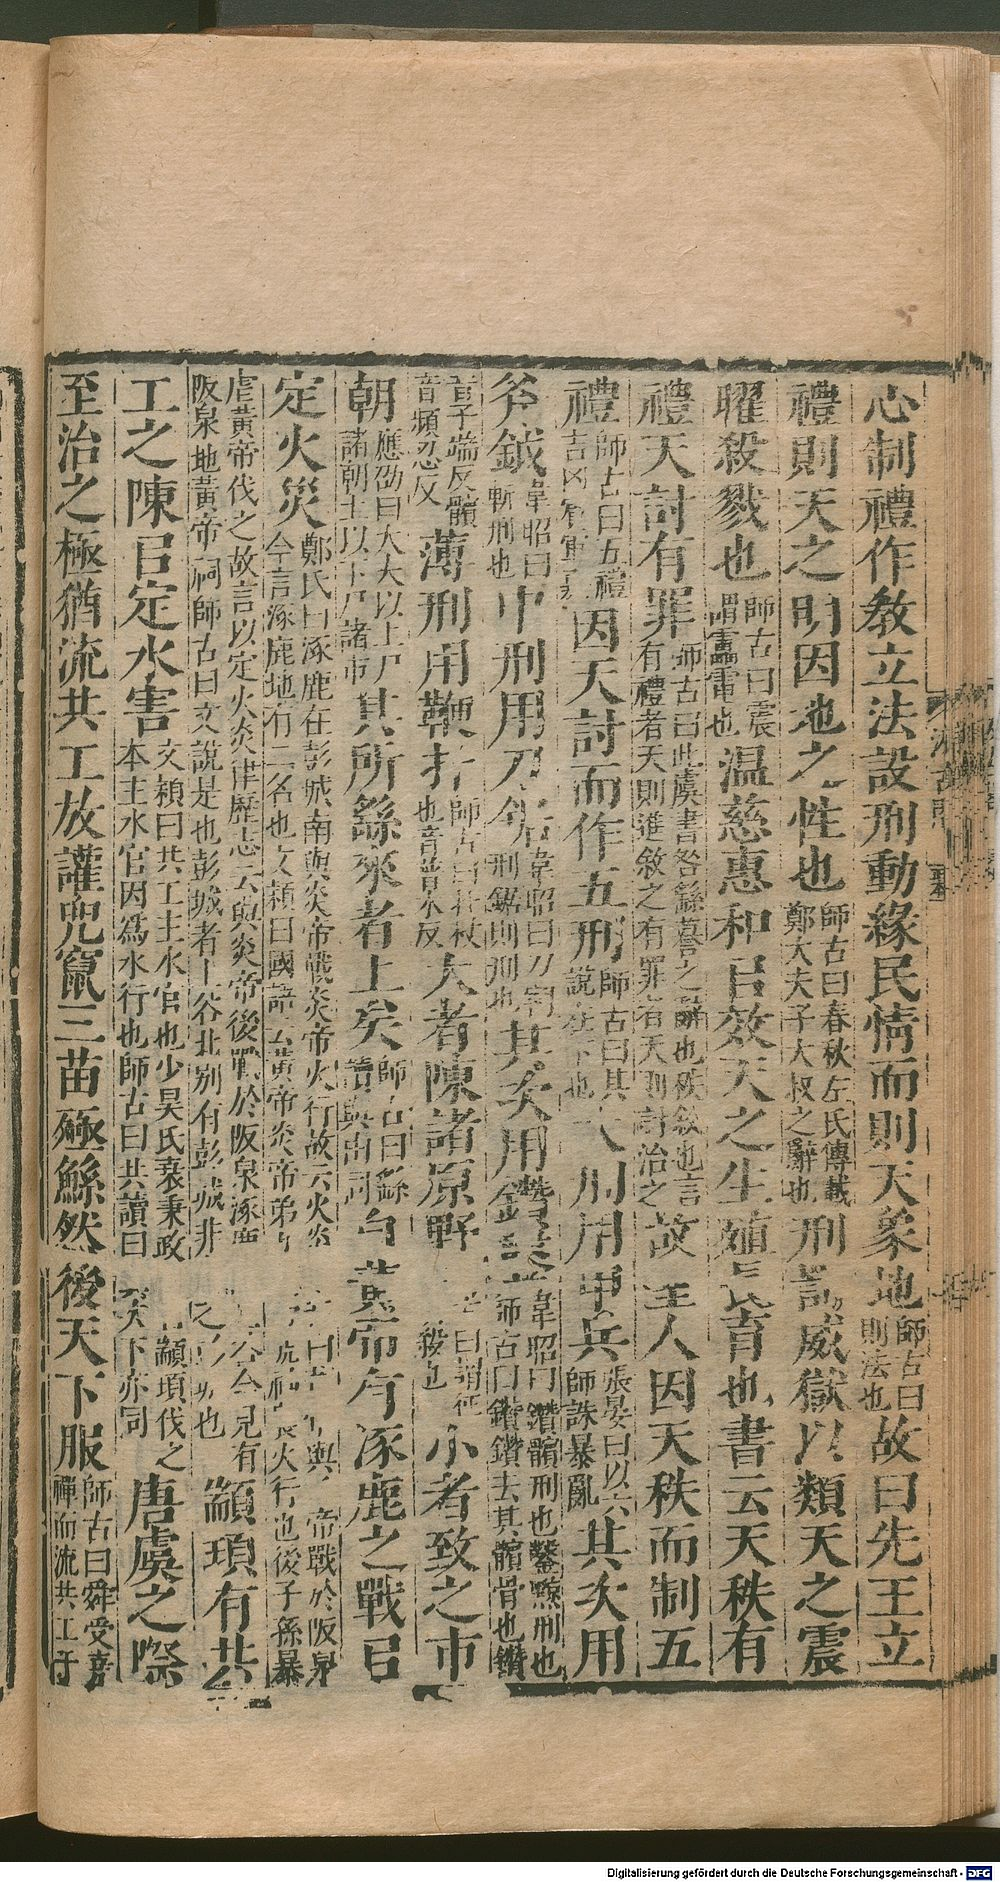 心制禮作教立法設刑動緣民情而則天象地師古曰則法也故曰先王立
禮則天之明因地之性也師古曰春秋左氏傳載鄭大夫子大叔之辭也刑罰威獄以類天之震
曜殺戮也師古曰震謂靁電也温慈惠和㠯效天之生殖長育也書云天秩有
禮天討有罪師古曰此虞書咎繇謩之辭也秩敘也言有禮者天則進敘之有罪者天則討治之故聖人因天秩而制五
禮師古曰五禮吉凶賓軍嘉因天討而作五刑師古曰其說在下也大刑用甲兵張晏曰以六師誅暴亂其次用
斧鉞韋昭曰斬刑也中刑用刀鋸韋昭曰刀割刑鋸刖刑也其次用鑽鑿韋昭曰鑽髕刑也鑿黥刑也師古曰鑽鑽去其髕骨也鑽
音子端反髕音頻忍反薄刑用鞭扑師古曰扑杖也音普木反大者陳諸原野師古曰謂征殺也小者致之市
朝應劭曰大夫以上尸諸朝士以下尸諸市其所繇來者上矣師古曰繇讀與由同自黃帝有涿鹿之戰㠯
定火災鄭氏曰涿鹿在彭城南與炎帝戰炎帝火行故云火災李奇曰黃帝與炎帝戰於阪泉今言涿鹿地有二名也文穎曰國語云黃帝炎帝弟也炎帝號神農火行也後子孫暴
虐黃帝伐之故言以定火災律歷志云與炎帝後戰於阪泉涿鹿在上谷今見有阪泉地黃帝祠師古曰文說是也彭城者上谷北别有彭城非之彭城也顓頊有共
工之陳㠯定水害文穎曰共工主水官也少昊氏衰秉政作虐故顓頊伐之本主水官因爲水行也師古曰共讀曰龔次下亦同唐虞之際
至治之極猶流共工放讙兜竄三苗殛鯀然後天下服師古曰舜受堯禪而流共工于
Digitalisierung gefördert durch die Deutsche Forschungsgemeinschaft - DFG